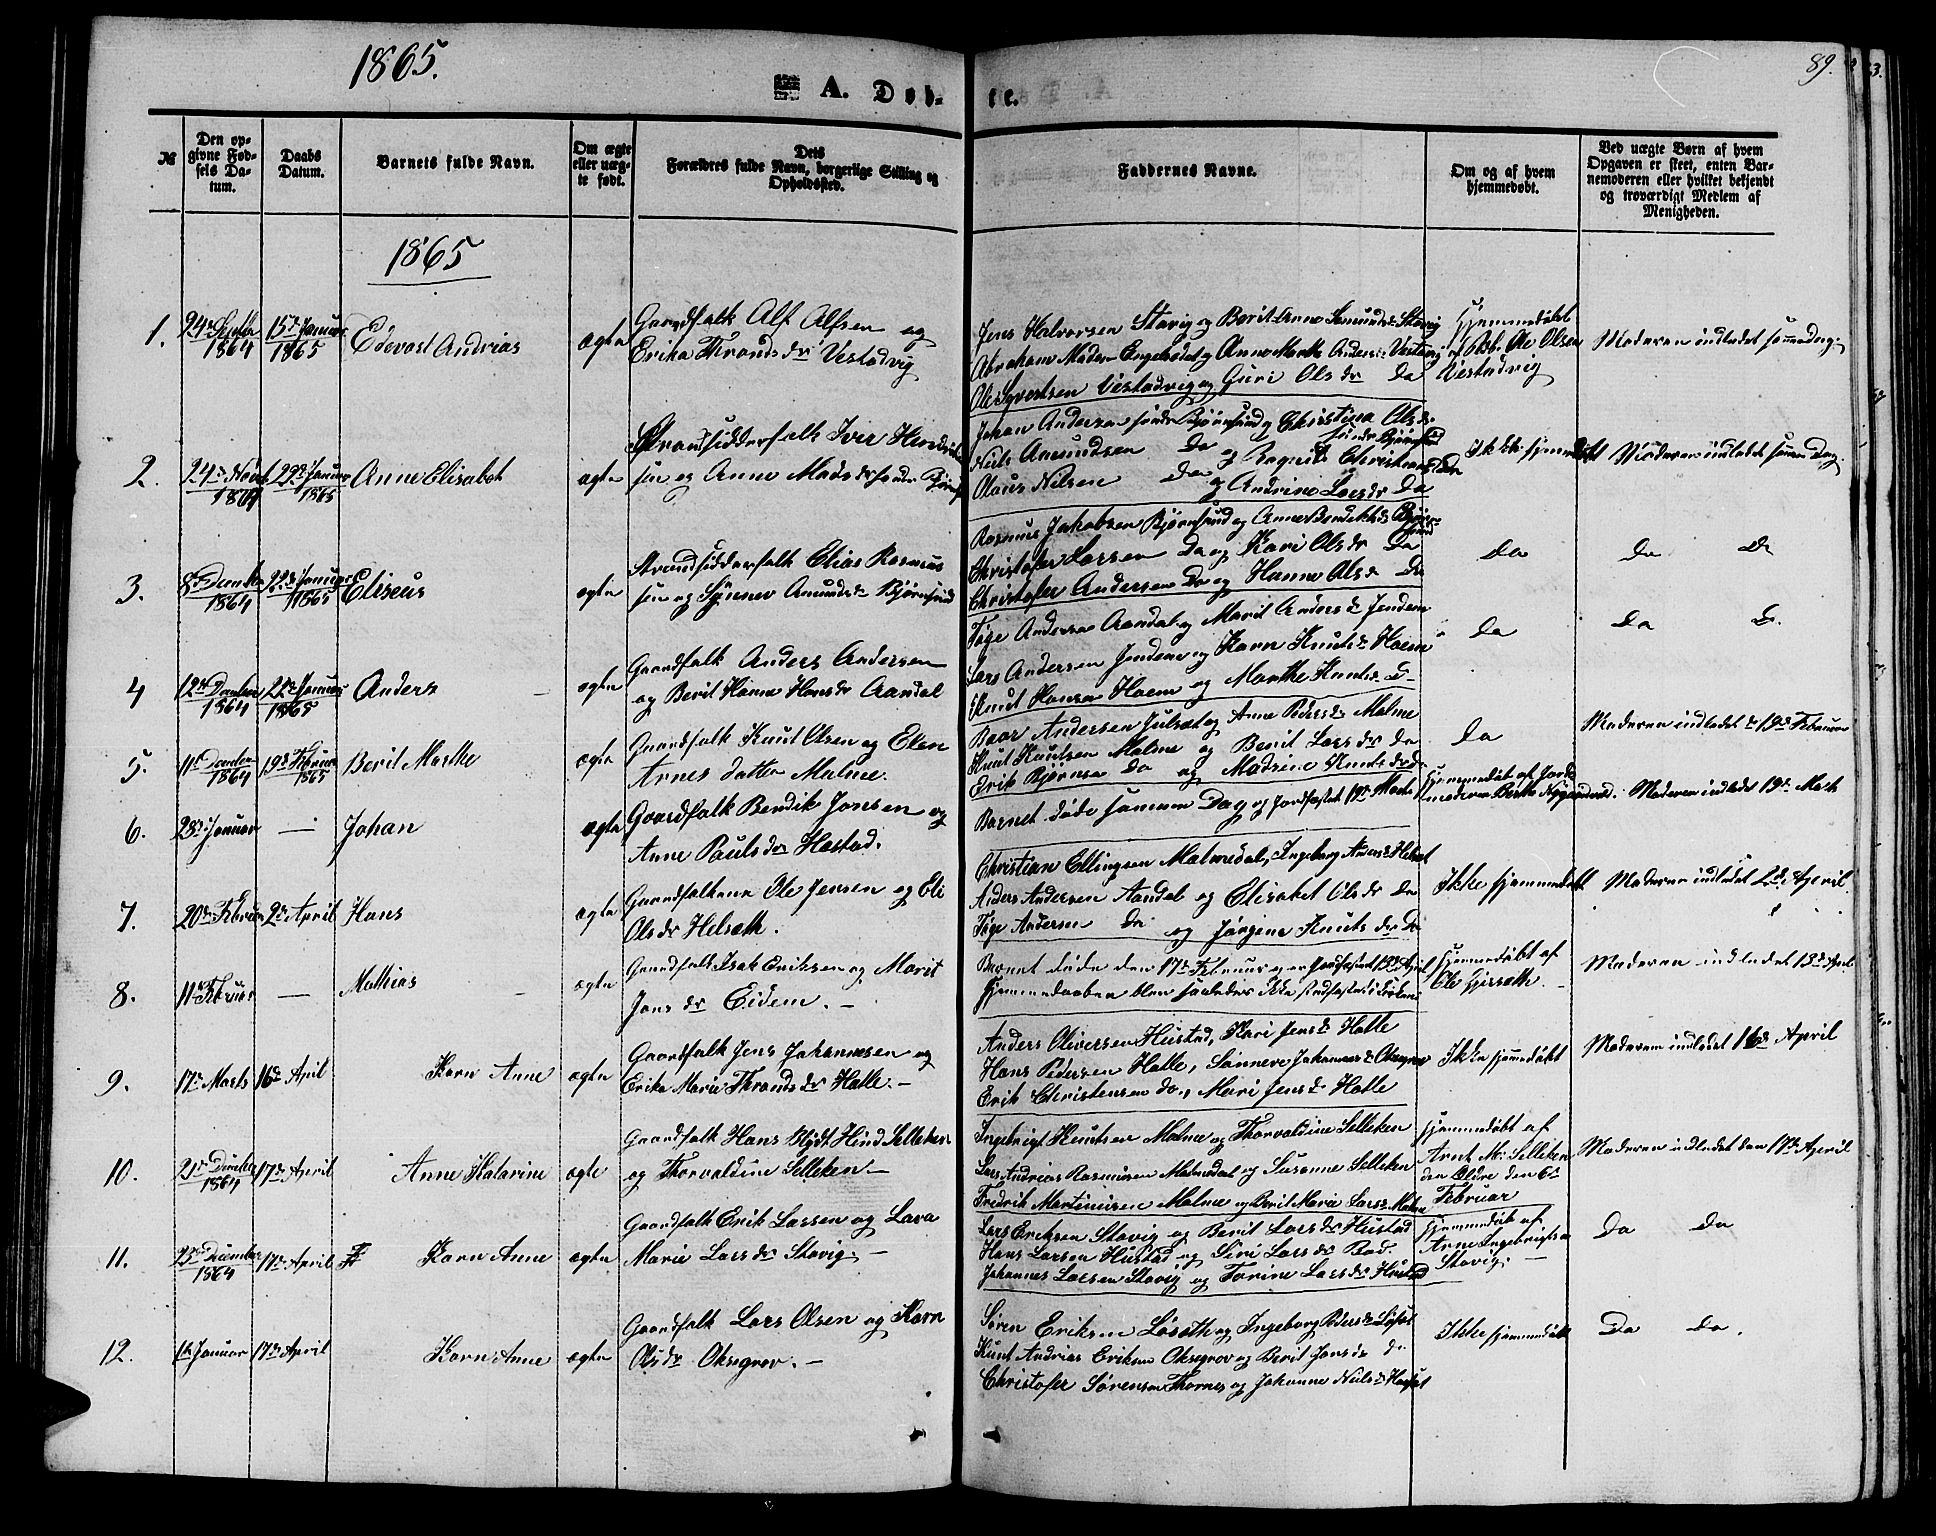 1865.
A. Døb-
te.
89.
№
Den op-
givne Fød-
sels Da-
tum.
Daabs
Datum.
Barnets fulde Navn.
Om ægte
eller uæg-
te født.
Dets
Forældres fulde Navn, borgerlige Stilling og
Opholdssted.
Faddernes Navne.
Om og af hvem
hjemmedøbt.
Ved uægte Børn af hvem
Opgaven er skeet, enten Bar-
nemoderen eller hvilket bekjendt
og troværdigt Medlem af
Menigheden.
1865
1.
24de Septbr
1864
15de Januar
1865
Edevast Andrias
ægte
Gaardfolk Alf Alfsen og
Erika Thrands dr Vestadvig
Jens Halvorsen Stavig og Berit Anne Amunds dr Stavig
Abraham Madsen Engelsdal og Anne Marthe Anders dr Vestavig
Ole Syvertsen Vestadvig og Guri Ols dr Do
Hjemmedøbt
af Ole Olsen
Vestadvig
Moderen indledet samme dag.
2.
24de Novbr
1864
22de Januar
1865
Anne Elisabet
ægte
Strandsidderfolk Iver Hendrik
sen og Anne Mads dr søndr Bjørns
Johan Andersen søndr Bjørnsund og Christina Ols dr
søndr Bjørnsund
Niels Amundsen Do og Ragnil Christens dr Do
Olaus Nilsen Do og Andrine Lars dr Do
Ikke hjemmedøbt
Moderen indledet samme Dag.
3.
8de Decembr
1864
22de Januar
1865
Eliseus
ægte
Strandsidderfolk Elias Rasmus
sen og Synnev Amunds dr Bjørnsund
Rasmus Jakobsen Bjørnsund og Anne Bendikts dr Bjørn-
sund
Christofer Larsen Do og Kari Ols dr Do
Christofer Andersen Do og Hanne Ols dr Do
Do
Do Do
4
12te Decembr
1864
22de Januar
1865
Anders
ægte
Gaardfolk Anders Andersen
og Berit Hanna Hans dr Aandal
Tøge Andersen Aandal og Marit Anders dr Jendem
Lars Andersen Jendem og Karn Knuts dr Hoem
Knut Hansen Hoem og Marthe Knuts dr Do
Do
Do Do.
5.
11te Decembr
1864
19de Februar
1865
Berit Marthe
ægte
Gaardfolk Knut Olsen og Elen
Arnes datter Malme.
Baar Andersen Julset og Anne Peders dr Malme
Knut Knutsen Malme og Berit Lars dr Do
Erik Bjørnsen Do og Madrine Knuts dr Do
Do
Moderen indledet de 19de Februar
6.
28de Januar
—
Johan
ægte
Gaardfolk Bendik Jonsen og
Anne Pauls dr Hostad.
Barnet døde samme Dag og jordfæstet 19de Marts
hjemmedøbt af Jorde
moderen Berthe Nygaardsvold.
Moderen indledet 19de Marts
7.
20de Februar
2de April
Hans
ægte
Gaardfolkene Ole Jensen og Eli
Ols dr Helseth.
Christian Ellingsen Malmedal, Ingeborg Anders dr Helset
Anders Andersen Aandal og Elisabet Ols dr Do
Tøge Andersen Do og Jørgine Knuts dr Do
Ikke hjemmedøbt
Moderen indledet 2de April.
8.
11te Februar
—
Mathias
ægte
Gaardfolk Isak Eriksen og Marit
Jons dr Eidem. —
Barnet døde den 17de Februar og er Jordfæstet 13de April
Hjemmedaaben blev saaledes ikke stadfæstet i Kirken
hjemmedøbt af
Ole Gjerseth.
Moderen indledet 13de April
9.
17de Marts
16de April
Karn Anne
ægte
Gaardfolk Jens Johannesen og
Erika Marie Thrands dr Halle. —
Anders Oliversen Hustad, Kari Jens dr Halle
Hans Pedersen Halle, Sønneve Johannes dr Oksegrov
Erik Christensen do, Mari Jens dr Halle
Ikke hjemmedøbt
Moderen indledet 16de April
10.
21de Decbr
1864
17de April
Anne Katarine
ægte
Gaardfolk Hans Blydt Hind Selleken
og Thorvaldine Selleken —
Ingebrigt Knutsen Malme og Thorvaldine Selleken
Lars Andrias Rasmusen Malmedal og Susanne Selleken
Fredrik Martinusen Malme og Berit Maria Lars dr Malm
hjemmedøbt af
Arnt M. Selleken
den Eldre den 6te
Februar
Moderen indledet den 17de April
11.
23de December
1864
17de April
Karn Anne
ægte
Gaardfolk Erik Larsen og Lava
Marie Lars dr Stavig —
Lars Eriksen Stavig og Berit Lars dr Hustad
Hans Larsen Hustad og Siri Lars dr Bod.
Johannes Larsen Stavig og Torine Lars dr Hustad
hjemmedøbt af
Arne Ingebrigtsen
Stavig. —
Do Do
12.
1ste Januar
17de April
Karn Anne
ægte
Gaardfolk Lars Olsen og Karn
Ols dr Oksegrov. —
Søren Eriksen Løseth og Ingeborg Peders dr Løset
Knut Andrias Eriksen Oksegrov og Berit Jons dr do
Christofer Sørensen Thornes og Johanne Niels dr Harset
Ikke hjemmedøbt
Do do.